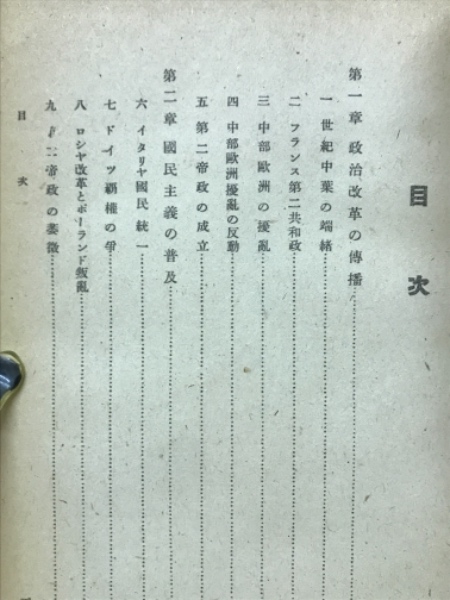 目次
第一章 政治改革の傳播
一 世紀中葉の端緒
二 フランス第二共和政
三 中部歐洲の擾亂
四 中部歐洲擾亂の反動
五 第二帝政の成立
第二章 國民主義の普及
六 イタリヤ國民統一
七 ドイツ覇權の爭
八 ロシヤ改革とポーランド叛亂
九 二帝政の
目次